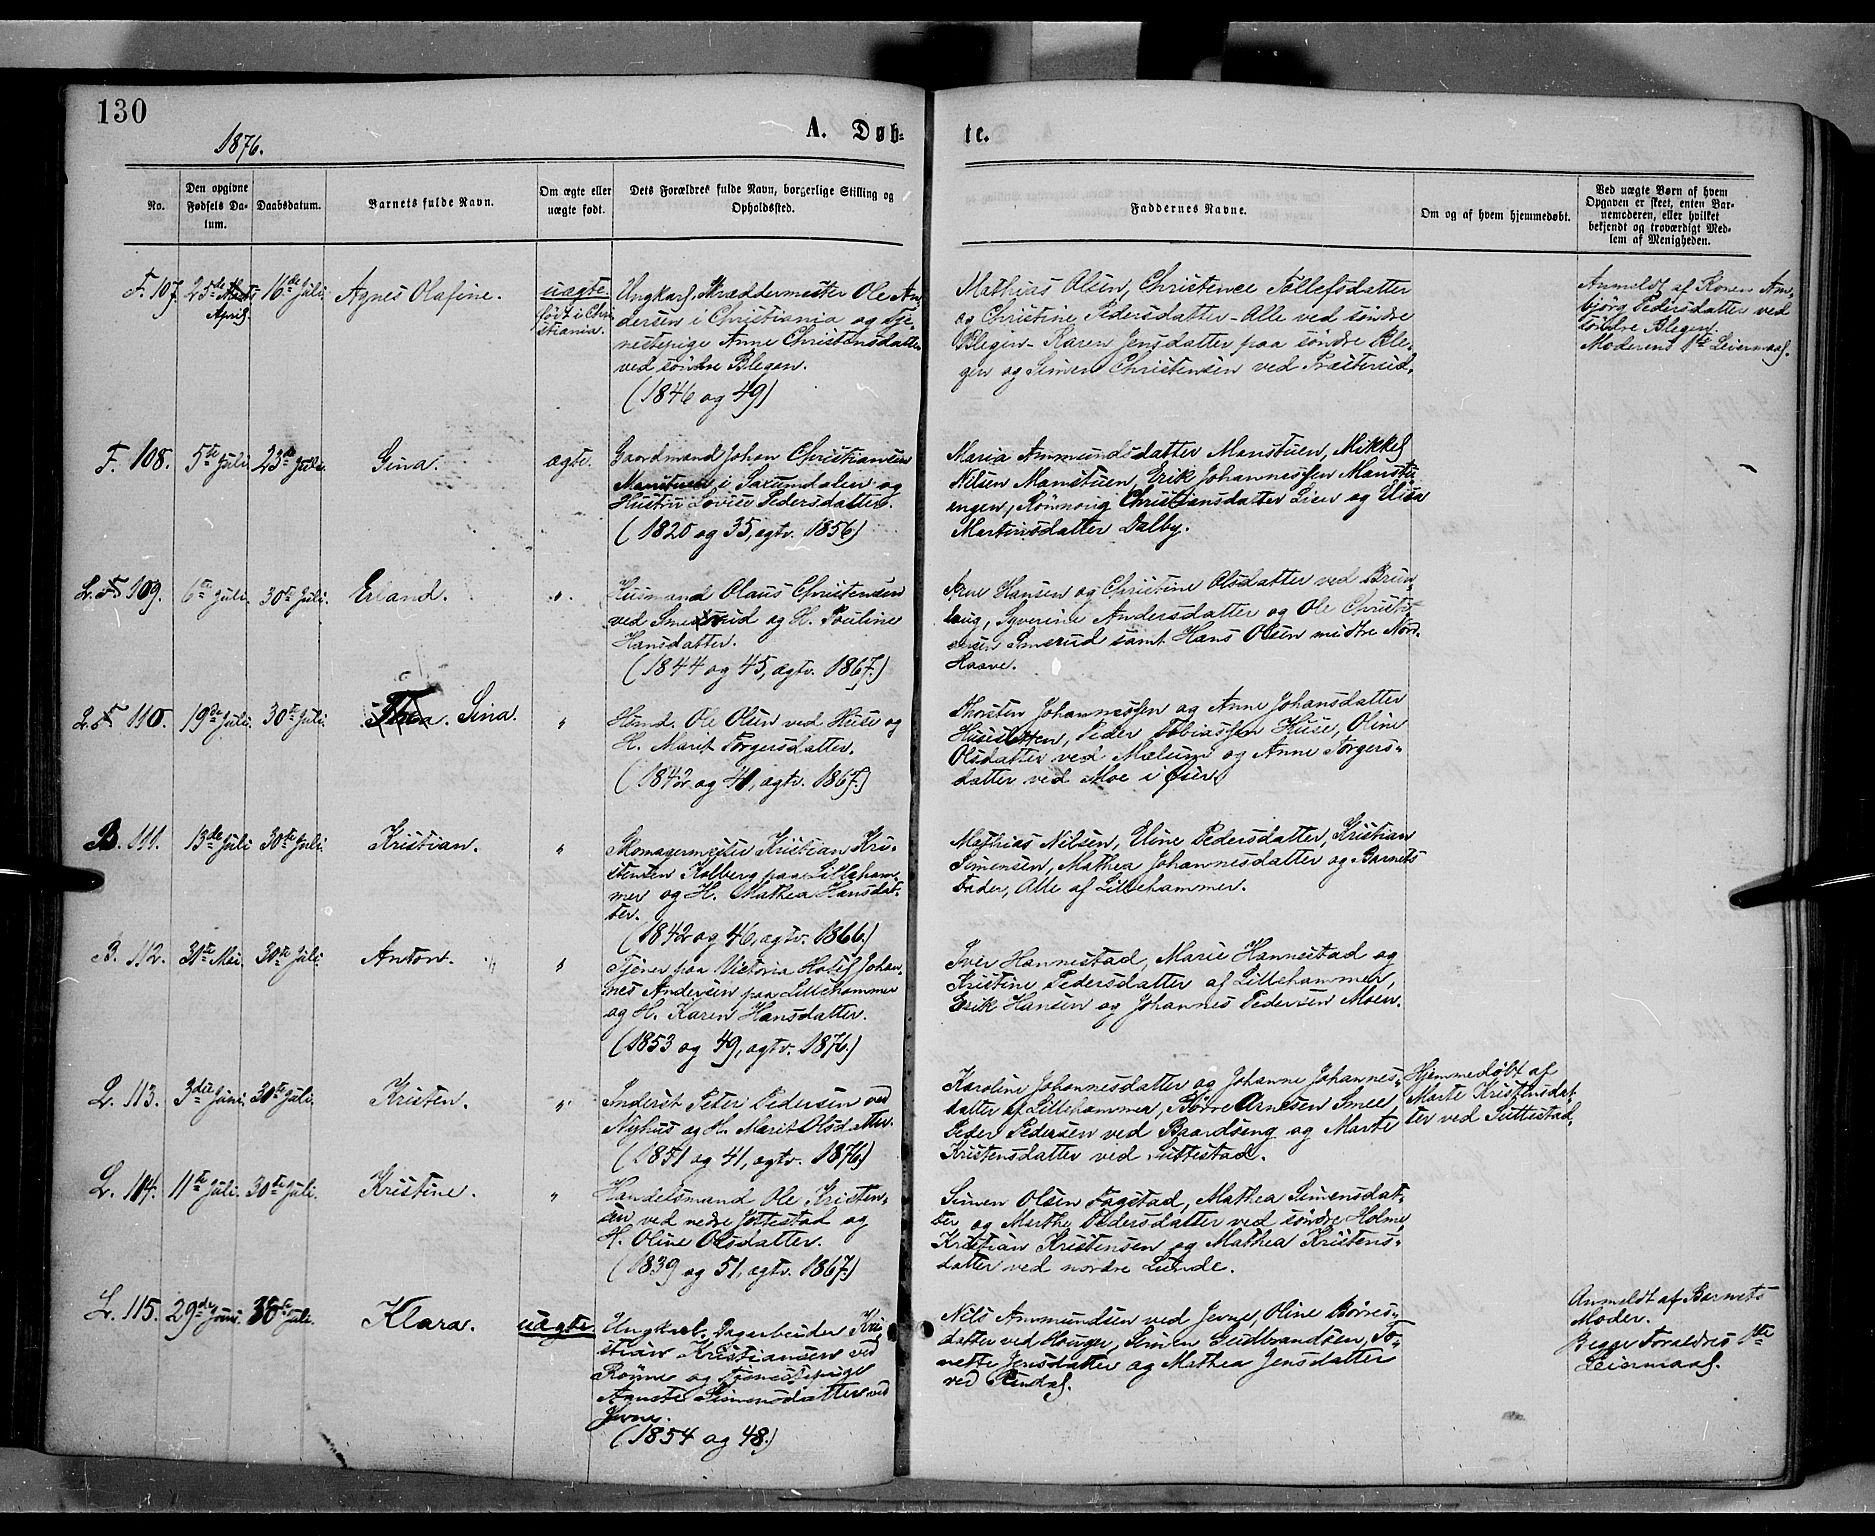 130
A. Døb-
te.
1876.
No.
Den opgivne
Fødsels Da-
tum.
Daabsdatum.
Barnets fulde Navn.
Om ægte eller
uægte født.
Dets Forældres fulde Navn, borgerlige Stilling og
Opholdssted.
Faddernes Navne.
Om og af hvem hjemmedøbt.
Ved uægte Børn af hvem
Opgaven er skeet, enten Bar-
nemoderen, eller hvilket
bekjendt og troværdigt Med-
lem af Menigheden.
F. 107.
25de Marts
April.
16de Juli.
Agnes Olafine.
uægte.
født i Chri-
stiania.
Ungkarl, Skræddermester Ole An-
dersen i Christiania og Tje-
nestepige Anne Christensdatter
ved søndre Blegen.
(1846 og 49)
Mathias Olsen, Christence Tollefsdatter
og Christine Pedersdatter - Alle ved søndre
Blegin - Karen Jensdatter paa søndre Ble-
gen og Simen Christensen ved
Anmeldt af Konen Am-
bjørg Pedersdatter ved
søndre Blegen.
Moderens 1ste Leiermaal.
F. 108.
5te Juli.
23de Juli.
Gina.
ægte.
Gaardmand Johan Christiansen
Manstuen i Saxumdalen og
Hustru Lovise Pedersdatter.
(1820 og 35, ægtv. 1856)
Maria Ammundsdatter Manstuen, Mikkel
Nilsen Manstuen, Erik Johannessen Manstu-
engen, Rønnoug Christiansdatter Lien og Elisa
Martinsdatter Dalby.
L. F 109.
6te Juli.
30te Juli.
Erland.
"
Husmand Olaus Christensen
ved Smedsrud og H. Pouline
Hansdatter.
(1844 og 45, ægtv. 1867.)
Arne Hansen og Christine Olsdatter ved Brun-
laug, Syverine Andersdatter og Ole Christi-
ansen Smsrud samt Hans Olsen midtre Nord-
Haave.
L. F 110.
19de Juli.
30te Juli.
Thea Sina.
"
Husmd. Ole Olsen ved Huse og
H. Marit Torgersdatter.
(1842 og 41, ægtv. 1867.)
Thorsten Johannessen og Anne Johansdatter
Husesletten, Peder Tobiassen Huse, Oline
Olsdatter ved Mælum og Anne Torgers-
datter ved Moe i Øier.
B. 111.
13de Juli
30te Juli.
Kristian.
"
Skomagermester Kristian Kri-
stensen Kolberg paa Lilleham-
mer og H. Mathea Hansdat-
ter.
(1842 og 46, ægtv. 1866.)
Mathias Nilsen, Eline Pedersdatter, Kristian
Simensen, Mathea Johannesdatter og Barnets
Fader, Alle af Lillehammer.
B. 112.
31te Mai.
30te Juli.
Anton.
"
Tjener paa Victoria Hotel Johan-
nes Andersen paa Lillehammer
og H. Karen Hansdatter.
(1853 og 49, ægtv. 1876.)
Iver Hannestad, Marie Hannestad og
Kristine Pedersdatter af Lillehammer,
Erik Hansen og Johannes Pedersen Moen.
L. 113.
3die Juni.
30te Juli.
Kristen.
"
Inderst Peter Pedersen ved
Nyhus og H. Marit Olsdatter.
(1851 og 41, ægtv. 1876)
Karoline Johannesdatter og Johanne Johannes-
datter af Lillehammer, Børre Arnesen Smeel
Peder Pedersen ved Baardseng og Marte
Kristensdatter ved Suttestad.
Hjemmedøbt af
Marte Kristensdat-
ter ved Suttestad.
L. 114.
11te Juli.
30te Juli.
Kristine.
"
Handelsmand Ole Kristen-
sen ved nedre Jøttestad og
H. Oline Olsdatter.
(1839 og 51, ægtv. 1867)
Simen Olsen Fagstad, Mathea Simensdat-
ter og Marthe Pedersdatter ved søndre Holme,
Kristian Kristensen og Mathea Kristens-
datter ved nordre Lunde.
L. 115.
29de Juni.
30te Juli.
Klara.
uægte.
Ungkarl, Dagarbeider Kri-
stian Kristiansen ved
Rønne og Tjenestepige
Agnete Simensdatter ved
Jevne.
(1854 og 48.)
Nils Ammundsen ved Jevne, Oline Børres-
datter ved Houger, Simen Gudbrandsen, To-
nette Jensdatter og Mathea Jensdatter
ved Rindal.
Anmeldt af Barnets
Moder.
Begge Forældres 1ste
Leiermaal.